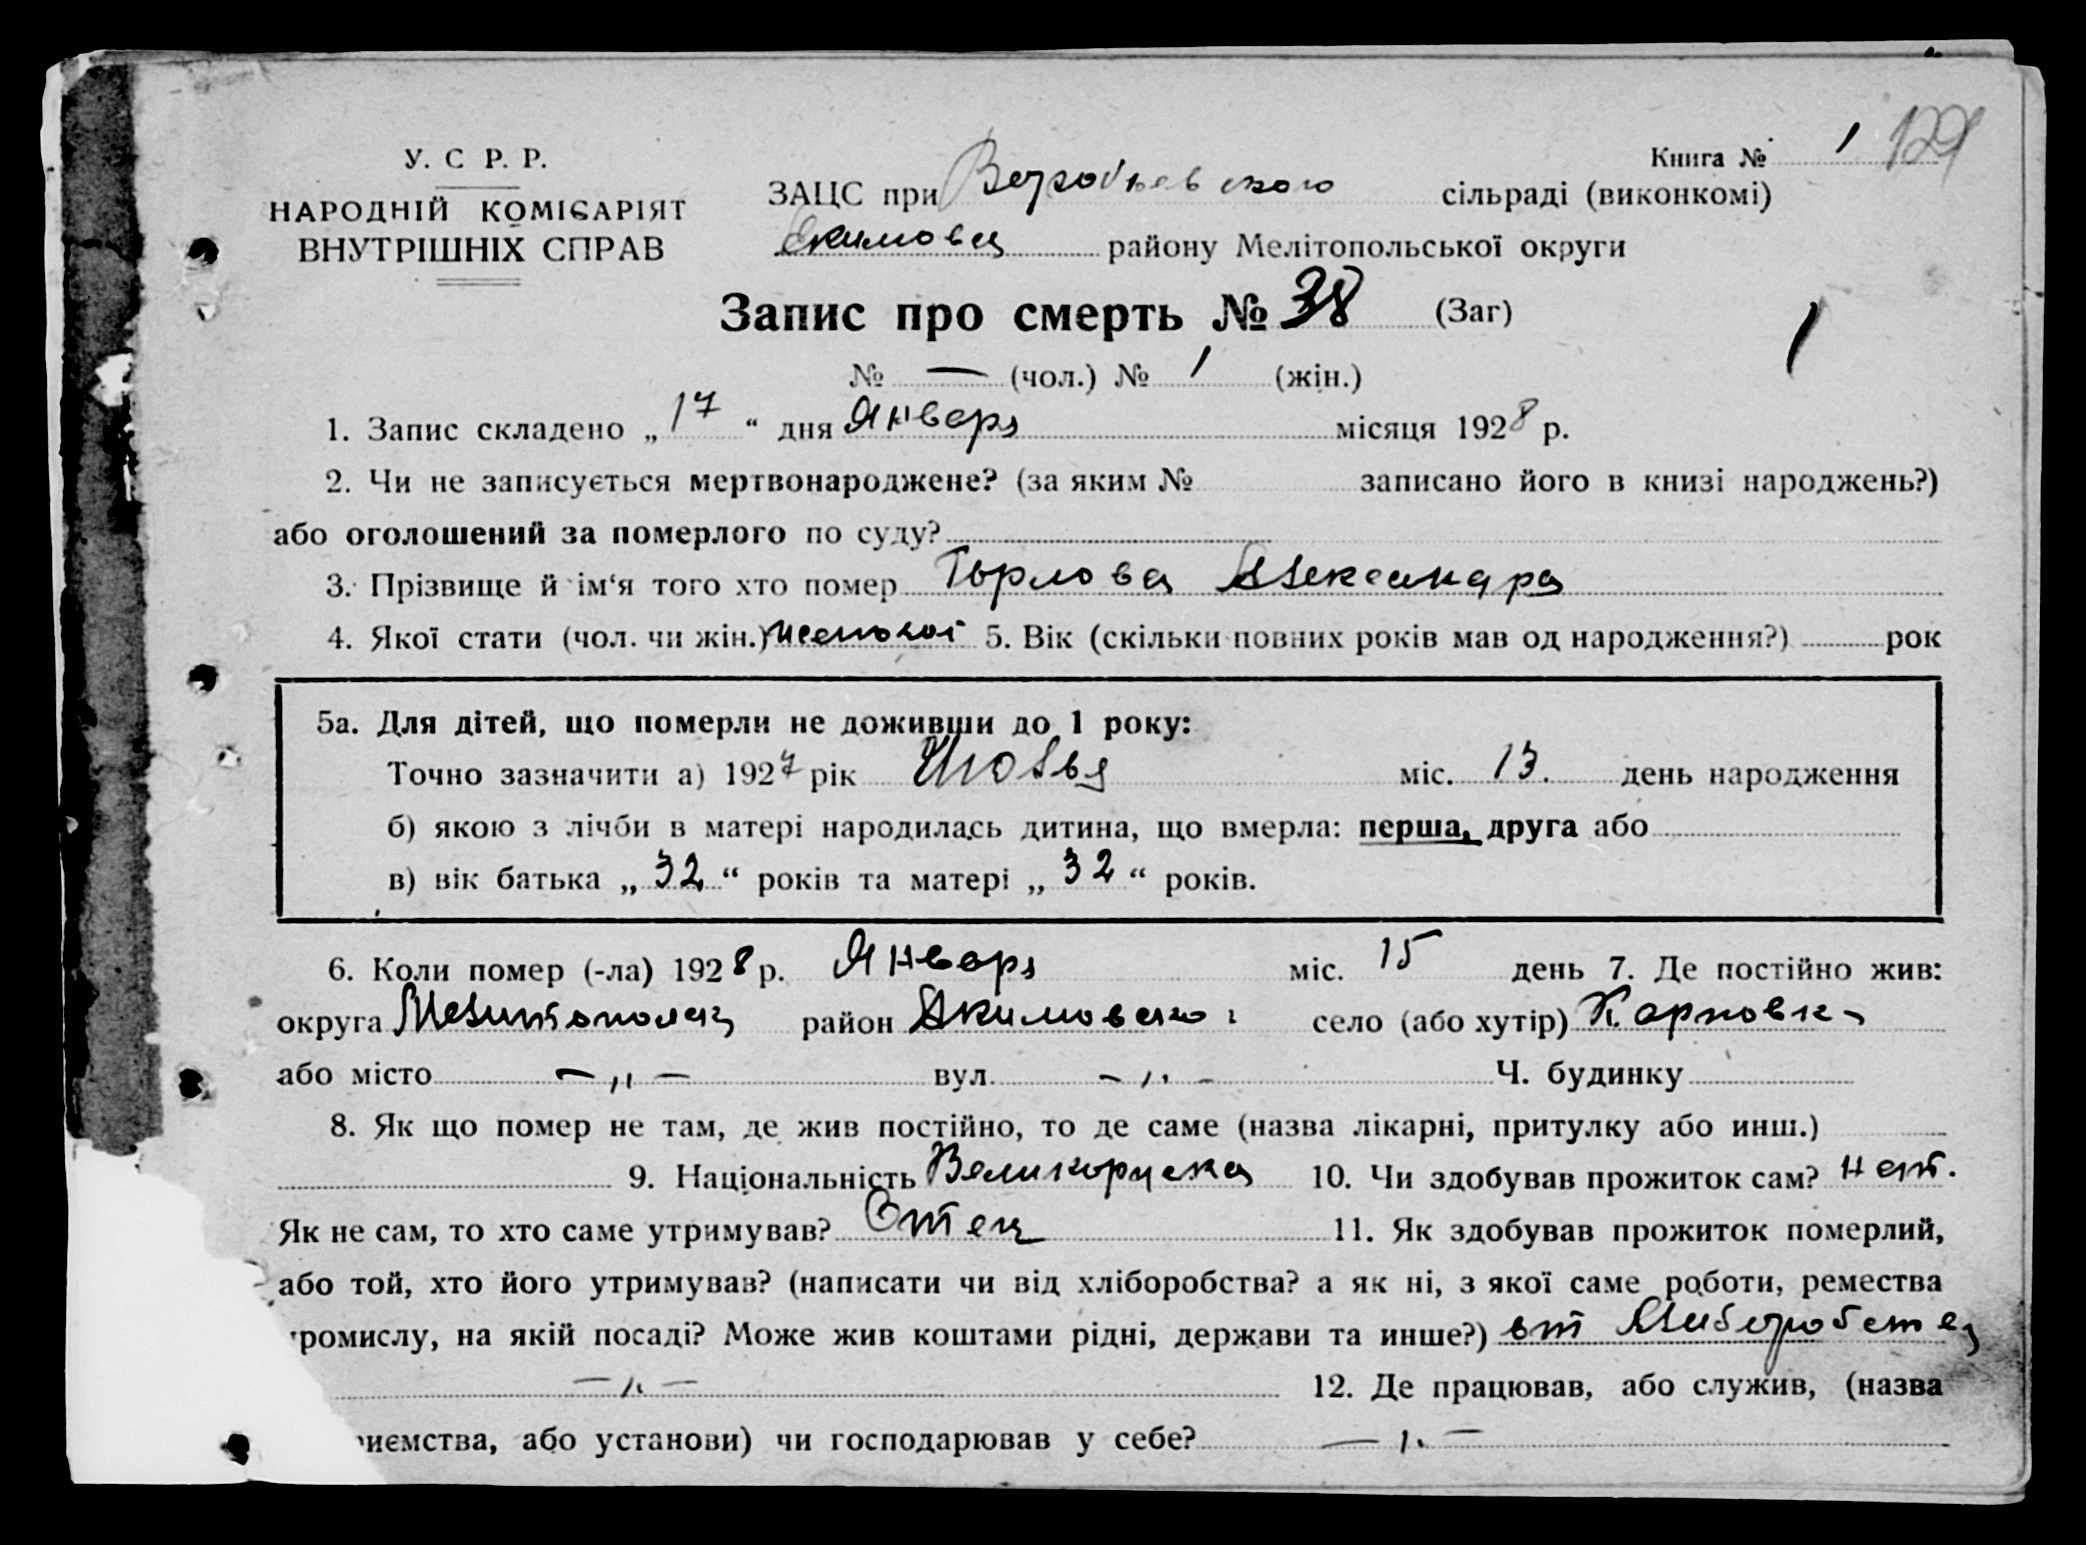 Книга № 1 129
У. С Р. Р.
НАРОДНІЙ КОМІСАРІЯТ
ВНУТРІШНІХ СПРАВ
ЗАЦС при сільраді (виконкомі)
району Мелітопольської округи
Запис про смерть № 38 (Заг)
1
№ — (чол.) № 1 (жін.)
1. Запис складено „ 17 “ дня Января місяця 1928 р.
2. Чи не записується мертвонароджене? (за яким № записано його в книзі народжень?)
або оголошений за померлого по суду?
3. Прізвище й ім‘я того хто помер Горлова Александра
4. Якої стати (чол. чи жін.) женской 5. Вік (скільки повних років мав од народження?) рок
5а. Для дітей, що померли не доживши до 1 року:
Точно зазначити а) 1927 рік міс. 13. день народження
б) якою з лічби в матері народилась дитина, що вмерла: перша, друга або
в) вік батька „ 32 “ років та матері „ 32 “ років.
6. Коли помер (-ла) 1928 р. Января міс. 15 день 7. Де постійно жив:
округа район село (або хутір)
або місто — „ — вул. — „ — Ч. будинку
8. Як що помер не там, де жив постійно, то де саме (назва лікарні, притулку або инш.)
9. Національність Великоруска 10. Чи здобував прожиток сам? нет.
Як не сам, то хто саме утримував? Отец 11. Як здобував прожиток померлий,
або той, хто його утримував? (написати чи від хліборобства? а як ні, з якої саме роботи, ремества
ромислу, на якій посаді? Може жив коштами рідні, держави та инше?) от
— „ — 12. Де працював, або служив, (назва
иємства, або установи) чи господарював у себе? — „ —